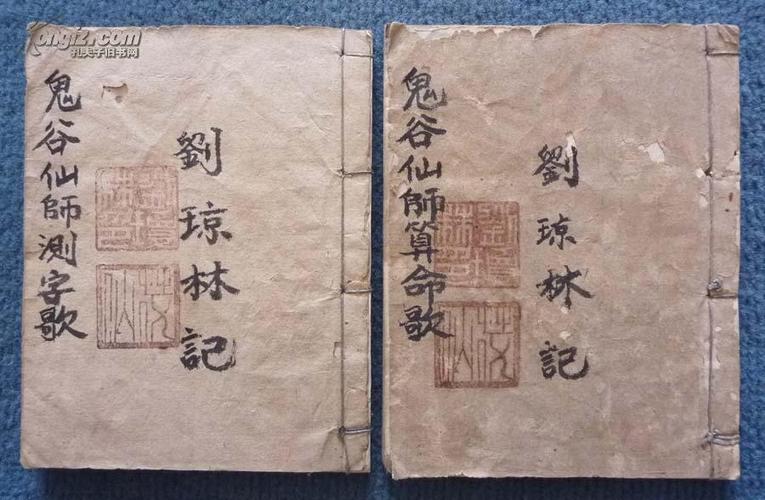 鬼谷仙師測字歌
劉琼林記
鬼谷仙師算命歌
劉琼林記
孔夫子旧书网